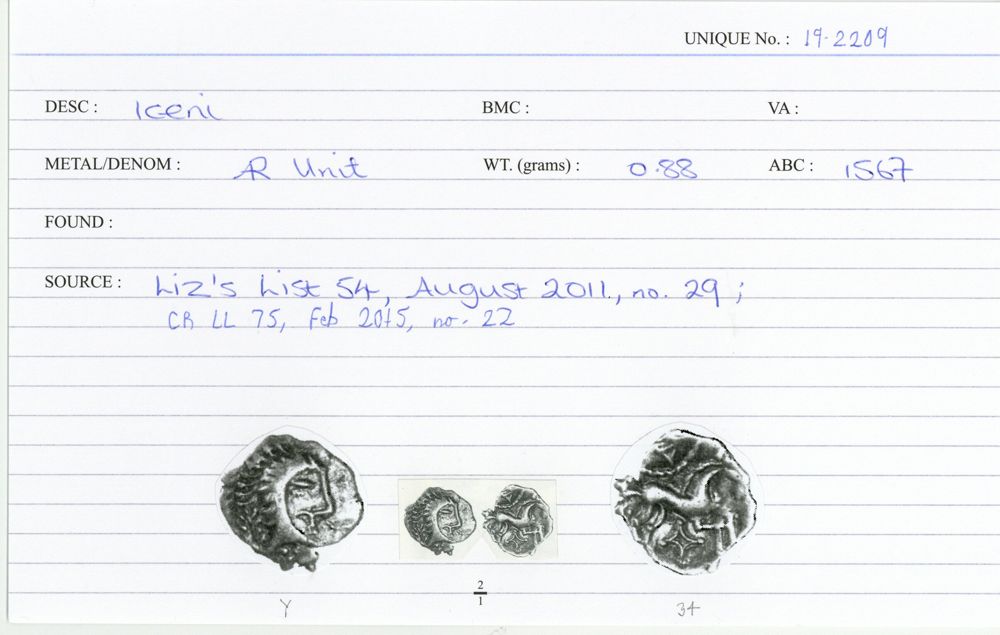 UNIQUE No. : 19-2209
DESC : Iceni BMC : VA :
METAL/DENOM : AR Unit WT. (grams) : 0.88 ABC : 1567
FOUND :
SOURCE : Liz's List 54, August 2011., no. 29 ;
CR LL 75, Feb 2015, no. 22
2
1
Y 34